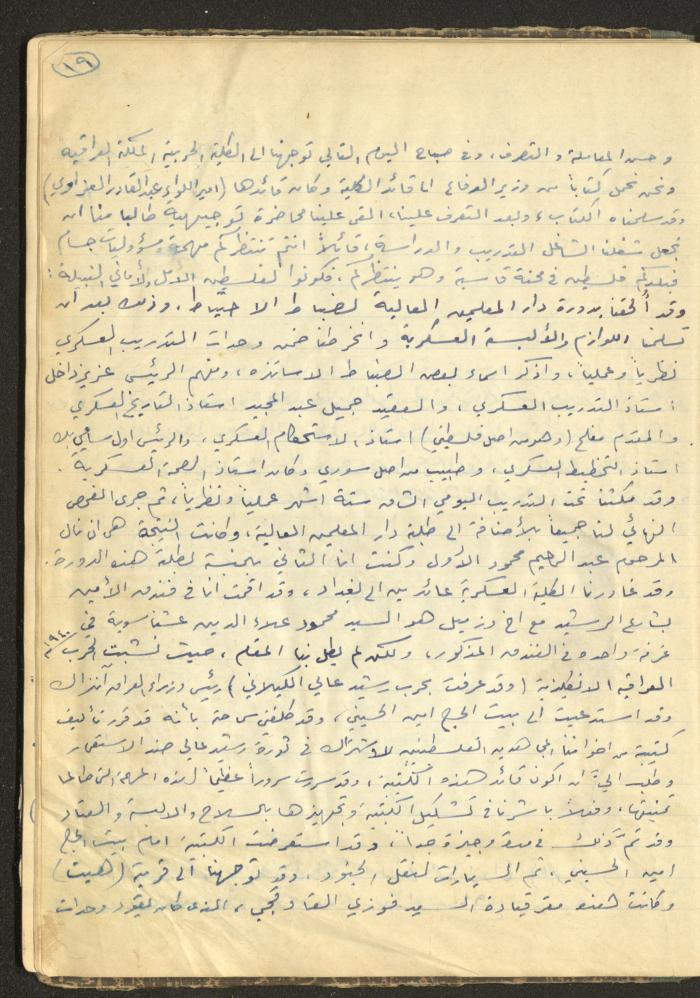 ١٩
وحسن المعاملة والتصرف، وفي صباح اليوم التالي توجهنا الى الكلية الحربية الملكة العراقيه
ونحن نحمل كتاباً من وزير الدفاع الى قائد الكلية وكان قائدها (امير اللواء عبد القادر العزاوي)
وقد سلمناه الكتاب، وبعد التعرف علينا، القى علينا محاضرة توجيهية طالبا منا ان
نجعل شغلنا الشاغل التدريب والدراسة، قائلاً انتم تنتظركم مهمة ومسؤوليات جسام
فبلدكم فلسطين في محنة قاسية وهو ينتظركم، فكونوا لفلسطين الامل والأماني النبيلة:
وقد أُلحقنا بدورة دار المعلمين العالية لضباط الاحتياط، وذلك بعد ان
تسلمنا اللوازم والألبسة العسكرية وانخرطنا ضمن وحدات التدريب العسكري
نظرياً وعملياً، واذكر اسماء بعض الضباط الاساتذه، ومنهم الرئيس عزيز داخل
استاذ التدريب العسكري، والعقيد جميل عبد المجيد استاذ التاريخ العسكري
والمقدم مفلح (وهو من اصل فلسطيني) استاذ الاستحكام العسكري، والرئيس اول سامي بك
استاذ التخطيط العسكري، وطبيب من اصل سوري وكان استاذ الصحة العسكرية.
وقد مكثنا تحت التدريب اليومي الشاق ستة اشهر عملياً ونظرياً، ثم جرى الفحص
النهائي لنا جميعاً بالأضافة الى طلبة دار المعلمين العالية، وكانت النتيجة هي ان نال
المرحوم عبد الرحيم محمود الأول وكنت انا الثاني بالنسبة لطلبة هذه الدورة.
وقد غادرنا الكلية العسكرية عائدين الى بغداد، وقد اقمت انا في فندق الأمين
بشارع الرشيد مع اخ وزميل هو السيد محمود علاء الدين عشنا سوية في
غرفة واحده في الفندق المذكور، ولكن لم يطل بنا المقام، حيث نشبت الحرب ١٩٤٠
العراقيه الانكليزية (وقد عرفت بحرب رشيد عالي الكيلاني) رئيس وزراء العراق آنذاك
وقد استدعيت الى بيت الحاج امين الحسيني، وقد كلفني سماحته بأنه قد قرر تأليف
كتيبة من اخواننا المجاهدين الفلسطينيين للاشتراك في ثورة رشيد عالي ضد الاستعمار
وطلب اليّ ان اكون قائد هذه الكتيبة، وقد سررت سروراً عظيماً لهذه المهمة التي طالما
تمنيتها، وفعلاً باشرنا في تشكيل الكتيبة وتجهيزها بالسلاح والالبسة والعتاد
وقد تم ذلك في مدة وجيزة جداً، وقد استعرضت الكتيبة امام بيت الحاج
امين الحسيني، ثم السيارات لنقل الجنود، وقد توجهنا الى قرية (هيت)
وكانت هذه مقر قيادة السيد فوزي القاوقجي، الذي كان يقود وحدات